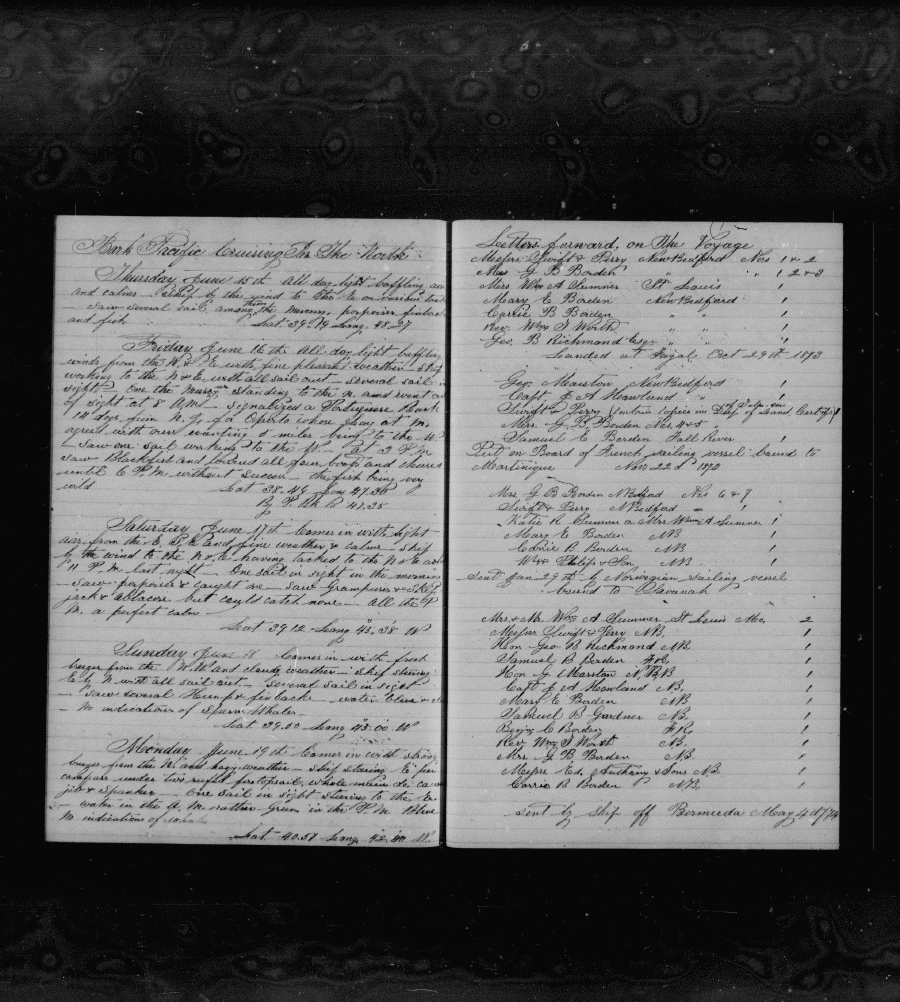 Bark Pacific Cruising To The North
Thursday June 15th All day light baffling airs
and calms Ship by the wind to the E on various tacks
Saw several sail, among them the Mercury, porpoises finbacks
and fish Lat 39.19 Long. 48.27
Friday June 16th All day light baffling
winds from the N & E with fine pleasant weather Ship
working to the N & E. with all sail out several sail in
sight One the Mercy standing to the N and went out
of sight at 8 A.M. signalized a Portuguese Bark
14 days from N.Y. for Oporto whose Long at M.
agreed with ours 8 miles being to the W
Saw one sail working to the W. At 3 P.M.
saw Blackfish and lowered all four boats and chased
until 6 P.M. without success the fish being very
wild Lat 38.49 Lon 47.30
By 47.35
Saturday June 17th Comes in with light
airs from the E, S, E and fine weather & calms Ship
by the wind to the N & E having tacked to the N & E at
11 P.M. last night One sail in sight in the morning
Saw porpoises & caught one saw Grampuses & Skip
jack & albacore but could catch none all the P
M. a perfect calm
Lat 39.12 Long 45.38 W
Sunday June 18 Comes in with fresh
breezes from the N.W. and cloudy weather Ship steering
E by N with all sail out Several sail in sight
Saw several Hump & finbacks water blue &
No indications of Sperm Whales
Lat 39.50 Long 43.00 W
Monday June 19th Comes in with strong
breezes from the N. and hazy weather ship steering E per
compass under two reefed foretopsail, whole main do.
jib & spanker One sail in sight steering to the E.
water in the A.M. rather green in the P.M. Blue
No indications of whale
Lat. 40.51 Long 42.00 W.
Letters forward, on The Voyage
Messrs Swift & Perry New Bedford Nos 1 & 2
Mrs G B Borden " " 1 2 & 3
Mrs Wm A Sumner St Louis 1
Mary E Borden New Bedford 1
Carrie B Borden " " 1
Rev. Wm T Worth " " 1
Geo. B Richmond Esq " " 1
Landed at Fayal Oct 29th 1873
Geo. Marston New Bedford 1
Capt. J A Howland " " 1
Swift & Perry Contain copies of Dfts on Land, Certif 1
Mrs. G. B. Borden Nos 4 & 5 "
Samuel E Borden Fall River 1
Put on Board of French sailing vessel bound to
Martinique Nov 22d 1873
Mrs G B Borden N Bedford Nos 6 & 7
Swift & Perry N Bedford 1
Katie R Sumner or Mrs Wm A Sumner 1
Mary E Borden NB 1
Carrie B Borden NB 1
Wm Philips & Son NB 1
Sent Jan 29th by Norwegian sailing vessel
bound to Savanah
Mrs & Mr. Wm A Sumner St Louis Mo. 2
Messrs Swift & Perry N.B. 1
Hon Geo B Richmond N.B. 1
Samuel B Borden F.R. 1
Hon G Marston N.B 1
Capt J A Howland N.B. 1
Mary E Borden N.B 1
Samuel B Gardner N.B. 1
Benj C Borden F.R. 1
Rev Wm T Worth N.B. 1
Mrs G B Borden N.B. 1
Messrs Ed. Anthony & Sons N.B. 1
Carrie B Borden N.B. 1
Sent by Ship off Bermuda May 4th/74